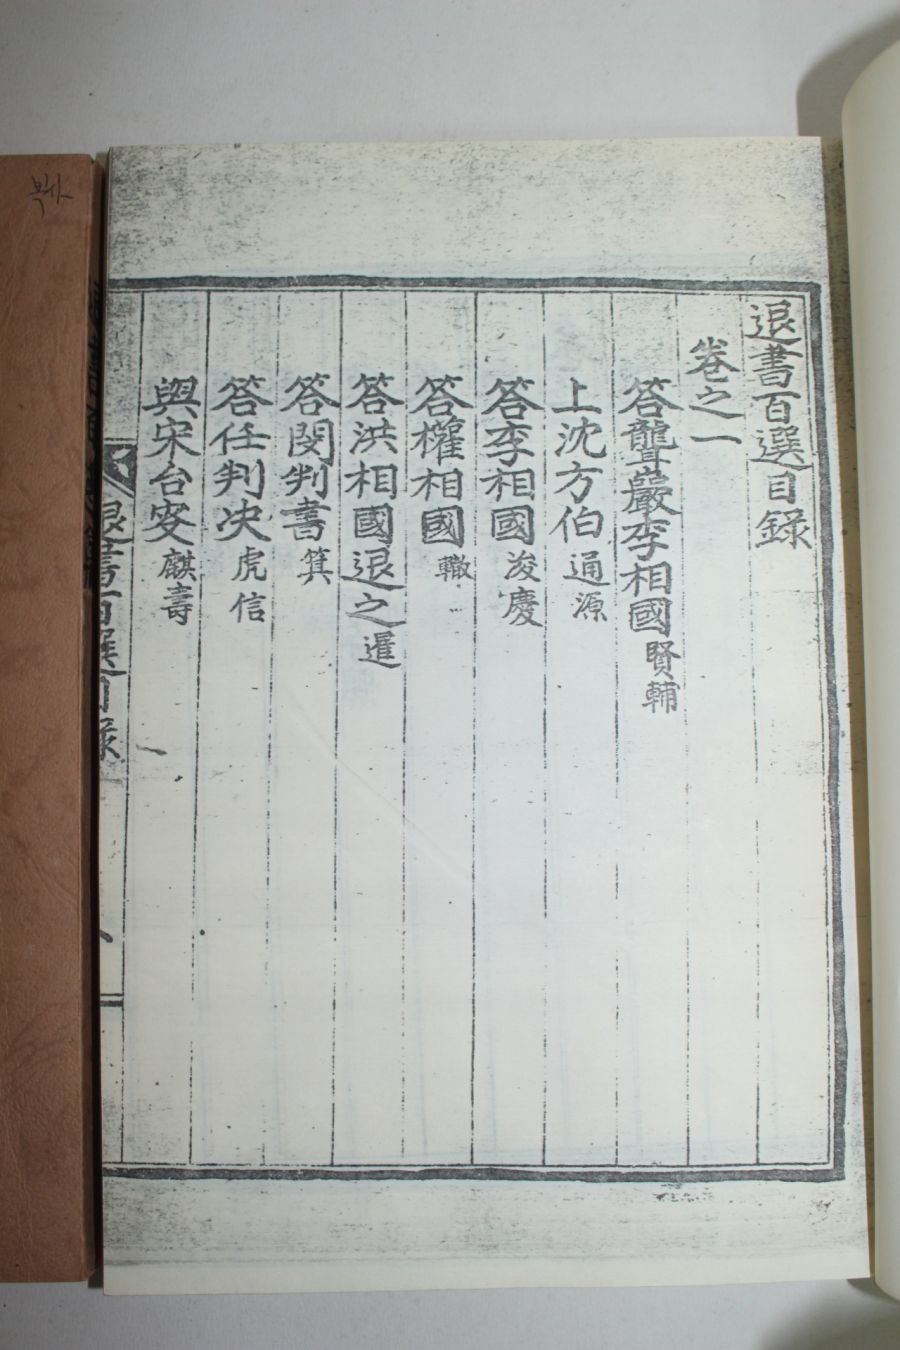 退書百選目錄
卷之一
答聾巖李相國賢輔
上沈方伯通源
答李相國浚慶
答權相國轍
答洪相國退之暹
答閔判書箕
答任判决虎信
與宋台叟麒壽
退書百選目錄
一